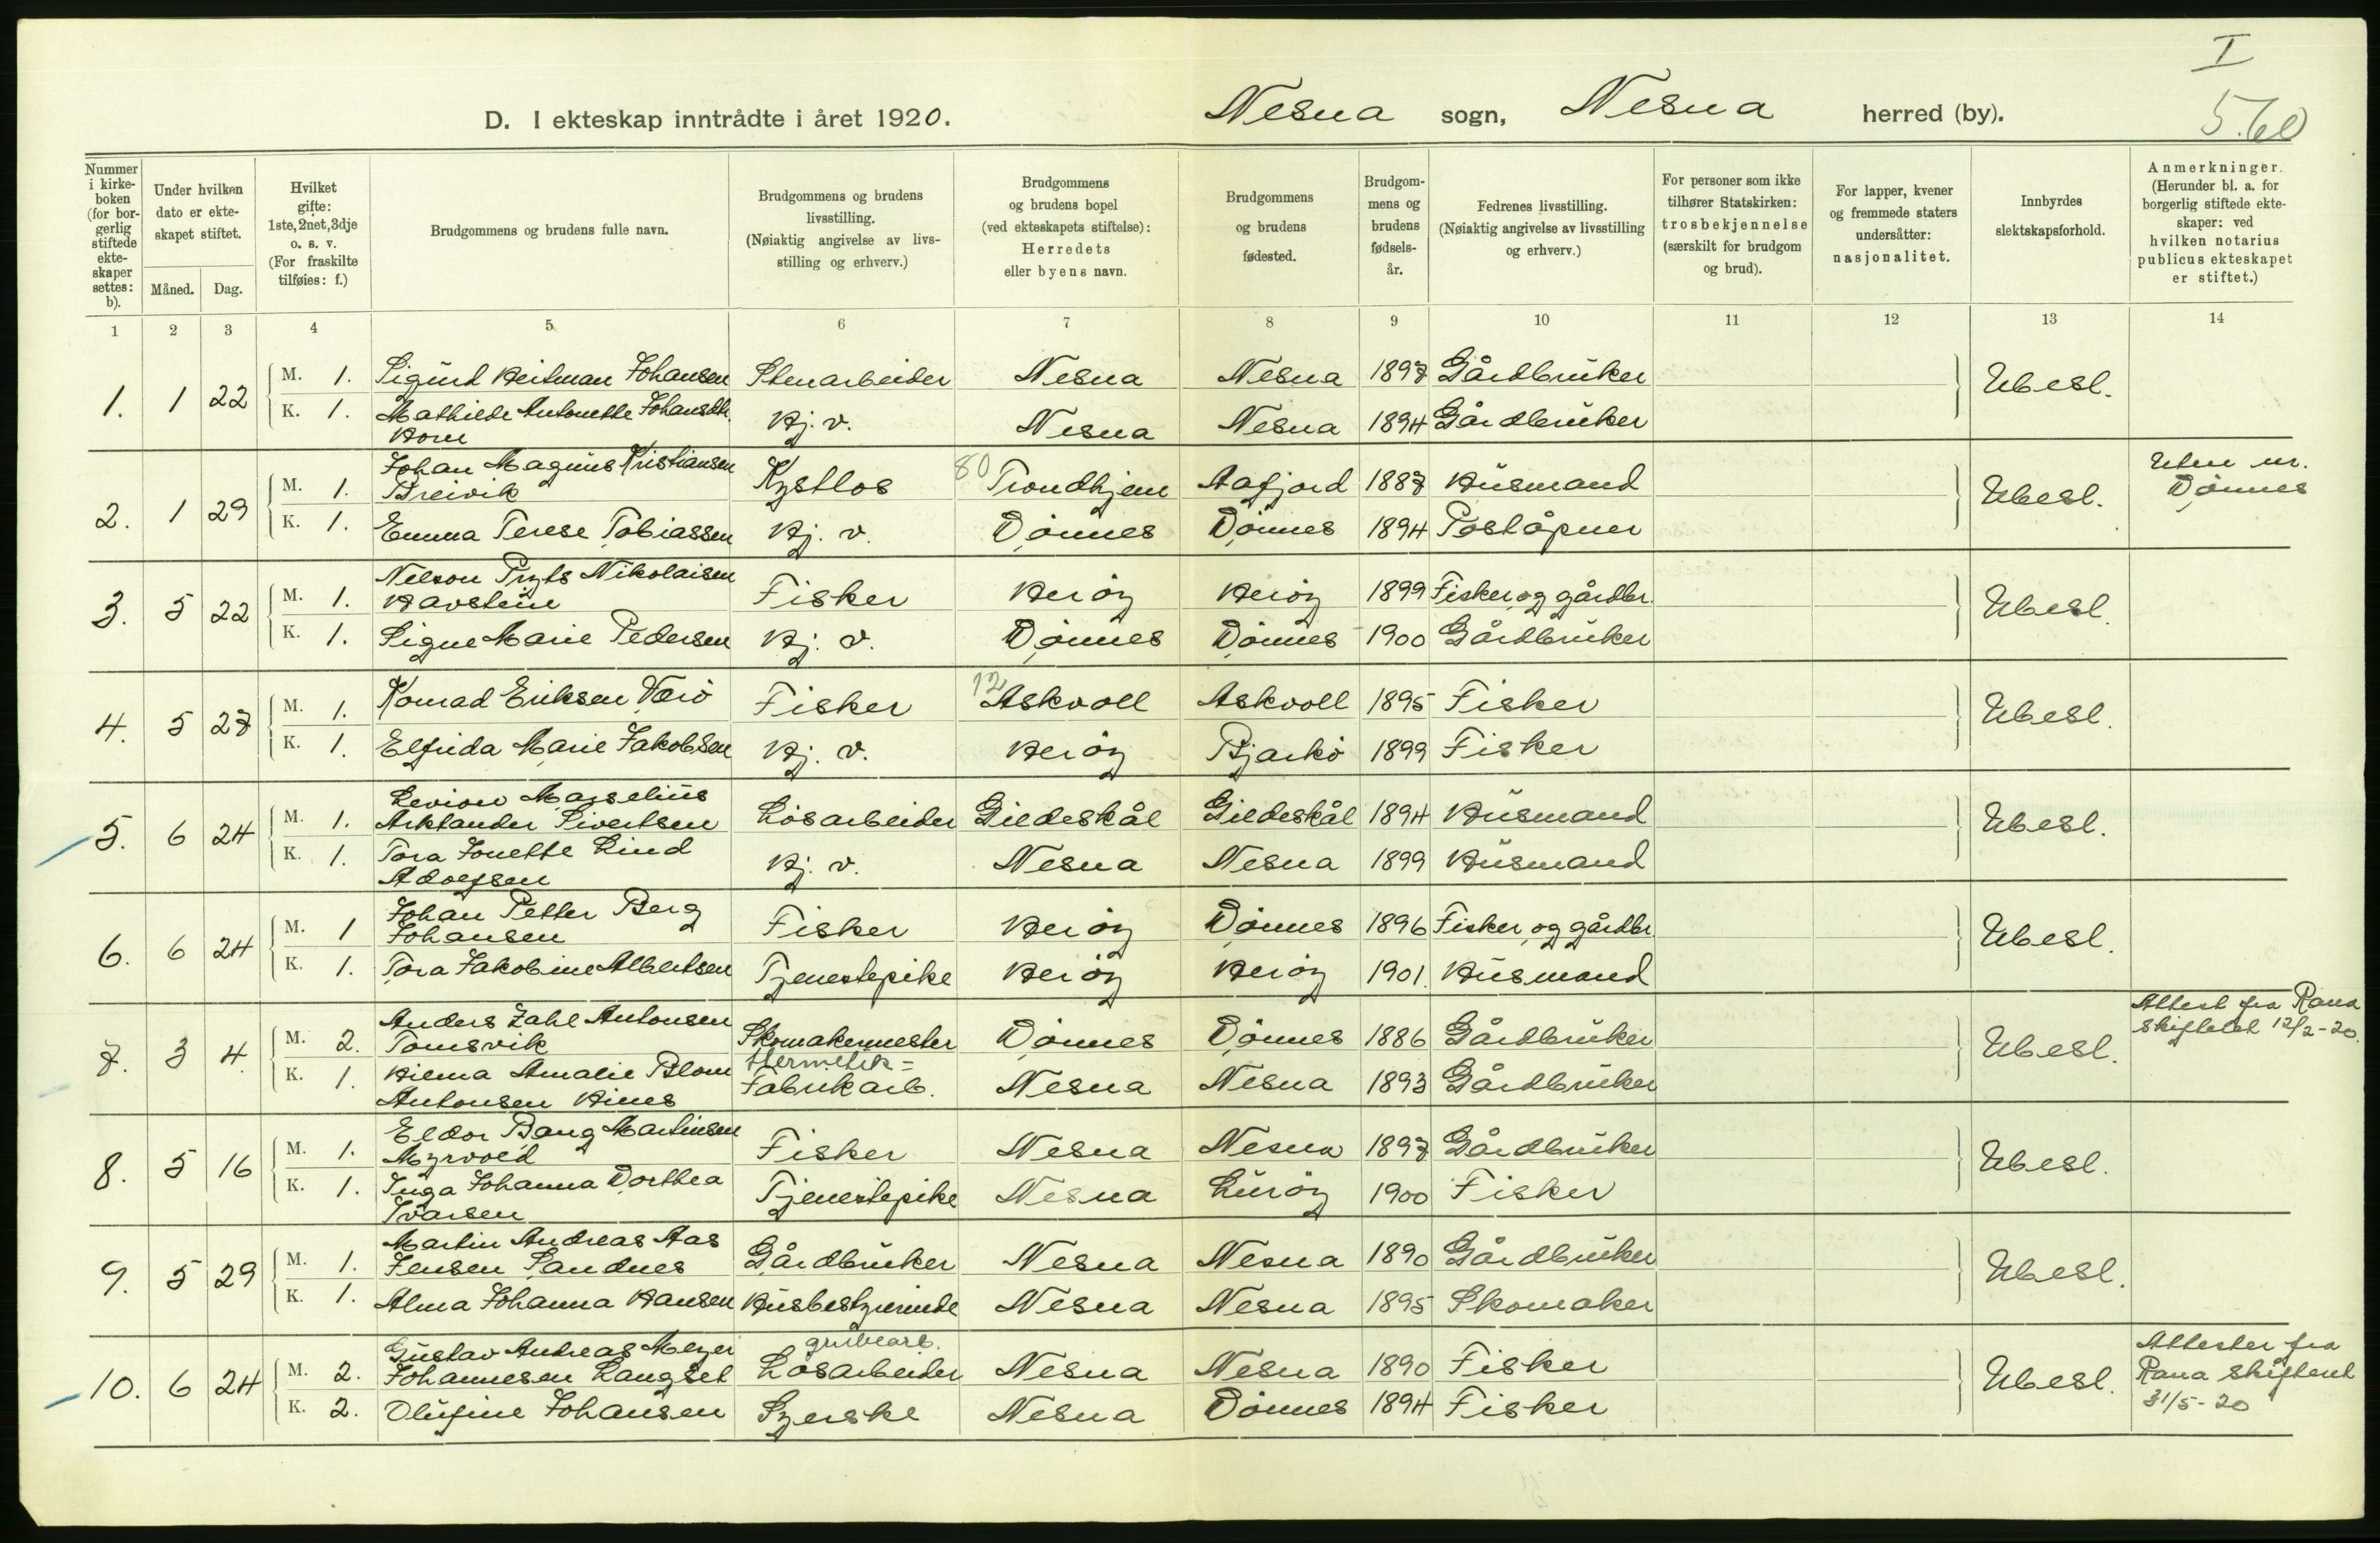 I
D. I ekteskap inntrådte i året 1920. Nesna sogn, Nesna herred (by). 5.60
Nummer i kirkeboken (for borgerlig stiftede ekteskaper settes: b).
Under hvilken dato er ekteskapet stiftet.
Måned. Dag.
Hvilket gifte: 1ste, 2net, 3dje o. s. v. (For fraskilte tilføies: f.)
Brudgommens og brudens fulle navn.
Brudgommens og brudens livsstilling. (Nøiaktig angivelse av livsstilling og erhverv.)
Brudgommens og brudens bopel (ved ekteskapets stiftelse): Herredets eller byens navn.
Brudgommens og brudens fødested.
Brudgommens og brudens fødselsår.
Fedrenes livsstilling. (Nøiaktig angivelse av livsstilling og erhverv.)
For personer som ikke tilhører Statskirken: trosbekjennelse (særskilt for brudgom og brud).
For lapper, kvener og fremmede staters undersåtter: nasjonalitet.
Innbyrdes slektskapsforhold.
Anmerkninger. (Herunder bl. a. for borgerlig stiftede ekteskaper: ved hvilken notarius publicus ekteskapet er stiftet.)
1 2 3 4 5 6 7 8 9 10 11 12 13 14
1. 1 22 M. 1. Sigurd Heitman Johansen Stenarbeider Nesna Nesna 1897 Gårdbruker Ubesl.
K. 1. Mathilde Antonette Johansdtr. Horn Hj. v. Nesna Nesna 1894 Gårdbruker
2. 1 29 M. 1. Johan Magnus Kristiansen Breivik Kystlos 80 Trondhjem Aafjord 1887 Husmand Ubesl. Uten nr. Dönnes
K. 1. Emma Terese Tobiassen Hj. v. Dönnes Dönnes 1894 Poståpner
3. 5 22 M. 1. Nelson Pryts Nikolaisen Havstein Fisker Heröy Heröy 1899 Fisker og gårdbr. Ubesl.
K. 1. Signe Marie Pedersen Hj. v. Dönnes Dönnes 1900 Gårdbruker
4. 5 27 M. 1. Konrad Eriksen Værö Fisker 12 Askvoll Askvoll 1895 Fisker Ubesl.
K. 1. Elfrida Marie Jakobsen Hj. v. Heröy Bjarkö 1899 Fisker
5. 6 24 M. 1. Levion Marselius Arktander Sivertsen Lösarbeider Gildeskål Gildeskål 1894 Husmand Ubesl.
K. 1. Tora Jonette Lind Adolfsen Hj. v. Nesna Nesna 1899 Husmand
6. 6 24 M. 1 Johan Petter Berg Johansen Fisker Heröy Dönnes 1896 Fisker og gårdbr. Ubesl.
K. 1. Tora Jakobine Albertsen Tjenestepike Heröy Heröy 1901. Husmand
7. 3 4. M. 2. Anders Zahl Antonsen Tomsvik Skomakermester Dönnes Dönnes 1886 Gårdbruker Ubesl. Attest fra Rana skifteret 12/2-20.
K. 1. Hilma Amalie Blom Antonsen Hines Hermetik= Fabrikarb. Nesna Nesna 1893 Gårdbruker
8. 5 16 M. 1. Eldor Bang Martinsen Myrvold Fisker Nesna Nesna 1897 Gårdbruker Ubesl.
K. 1. Inga Johanna Dorthea Ivarsen Tjenestepike Nesna Luröy 1900 Fisker
9. 5 29 M. 1. Martin Andreas Aas Jensen Sandnes Gårdbruker Nesna Nesna 1890 Gårdbruker Ubesl.
K. 1. Alma Johanna Hansen Husbestyrerinde Nesna Nesna 1895 Skomaker
10. 6 24 M. 2. Gustav Andreas Meyer Johannesen Langset grubearb. Lösarbeider Nesna Nesna 1890 Fisker Ubesl. Attester fra Rana skifteret 31/5-20
K. 2. Olufine Johansen Syerske Nesna Dönnes 1894 Fisker